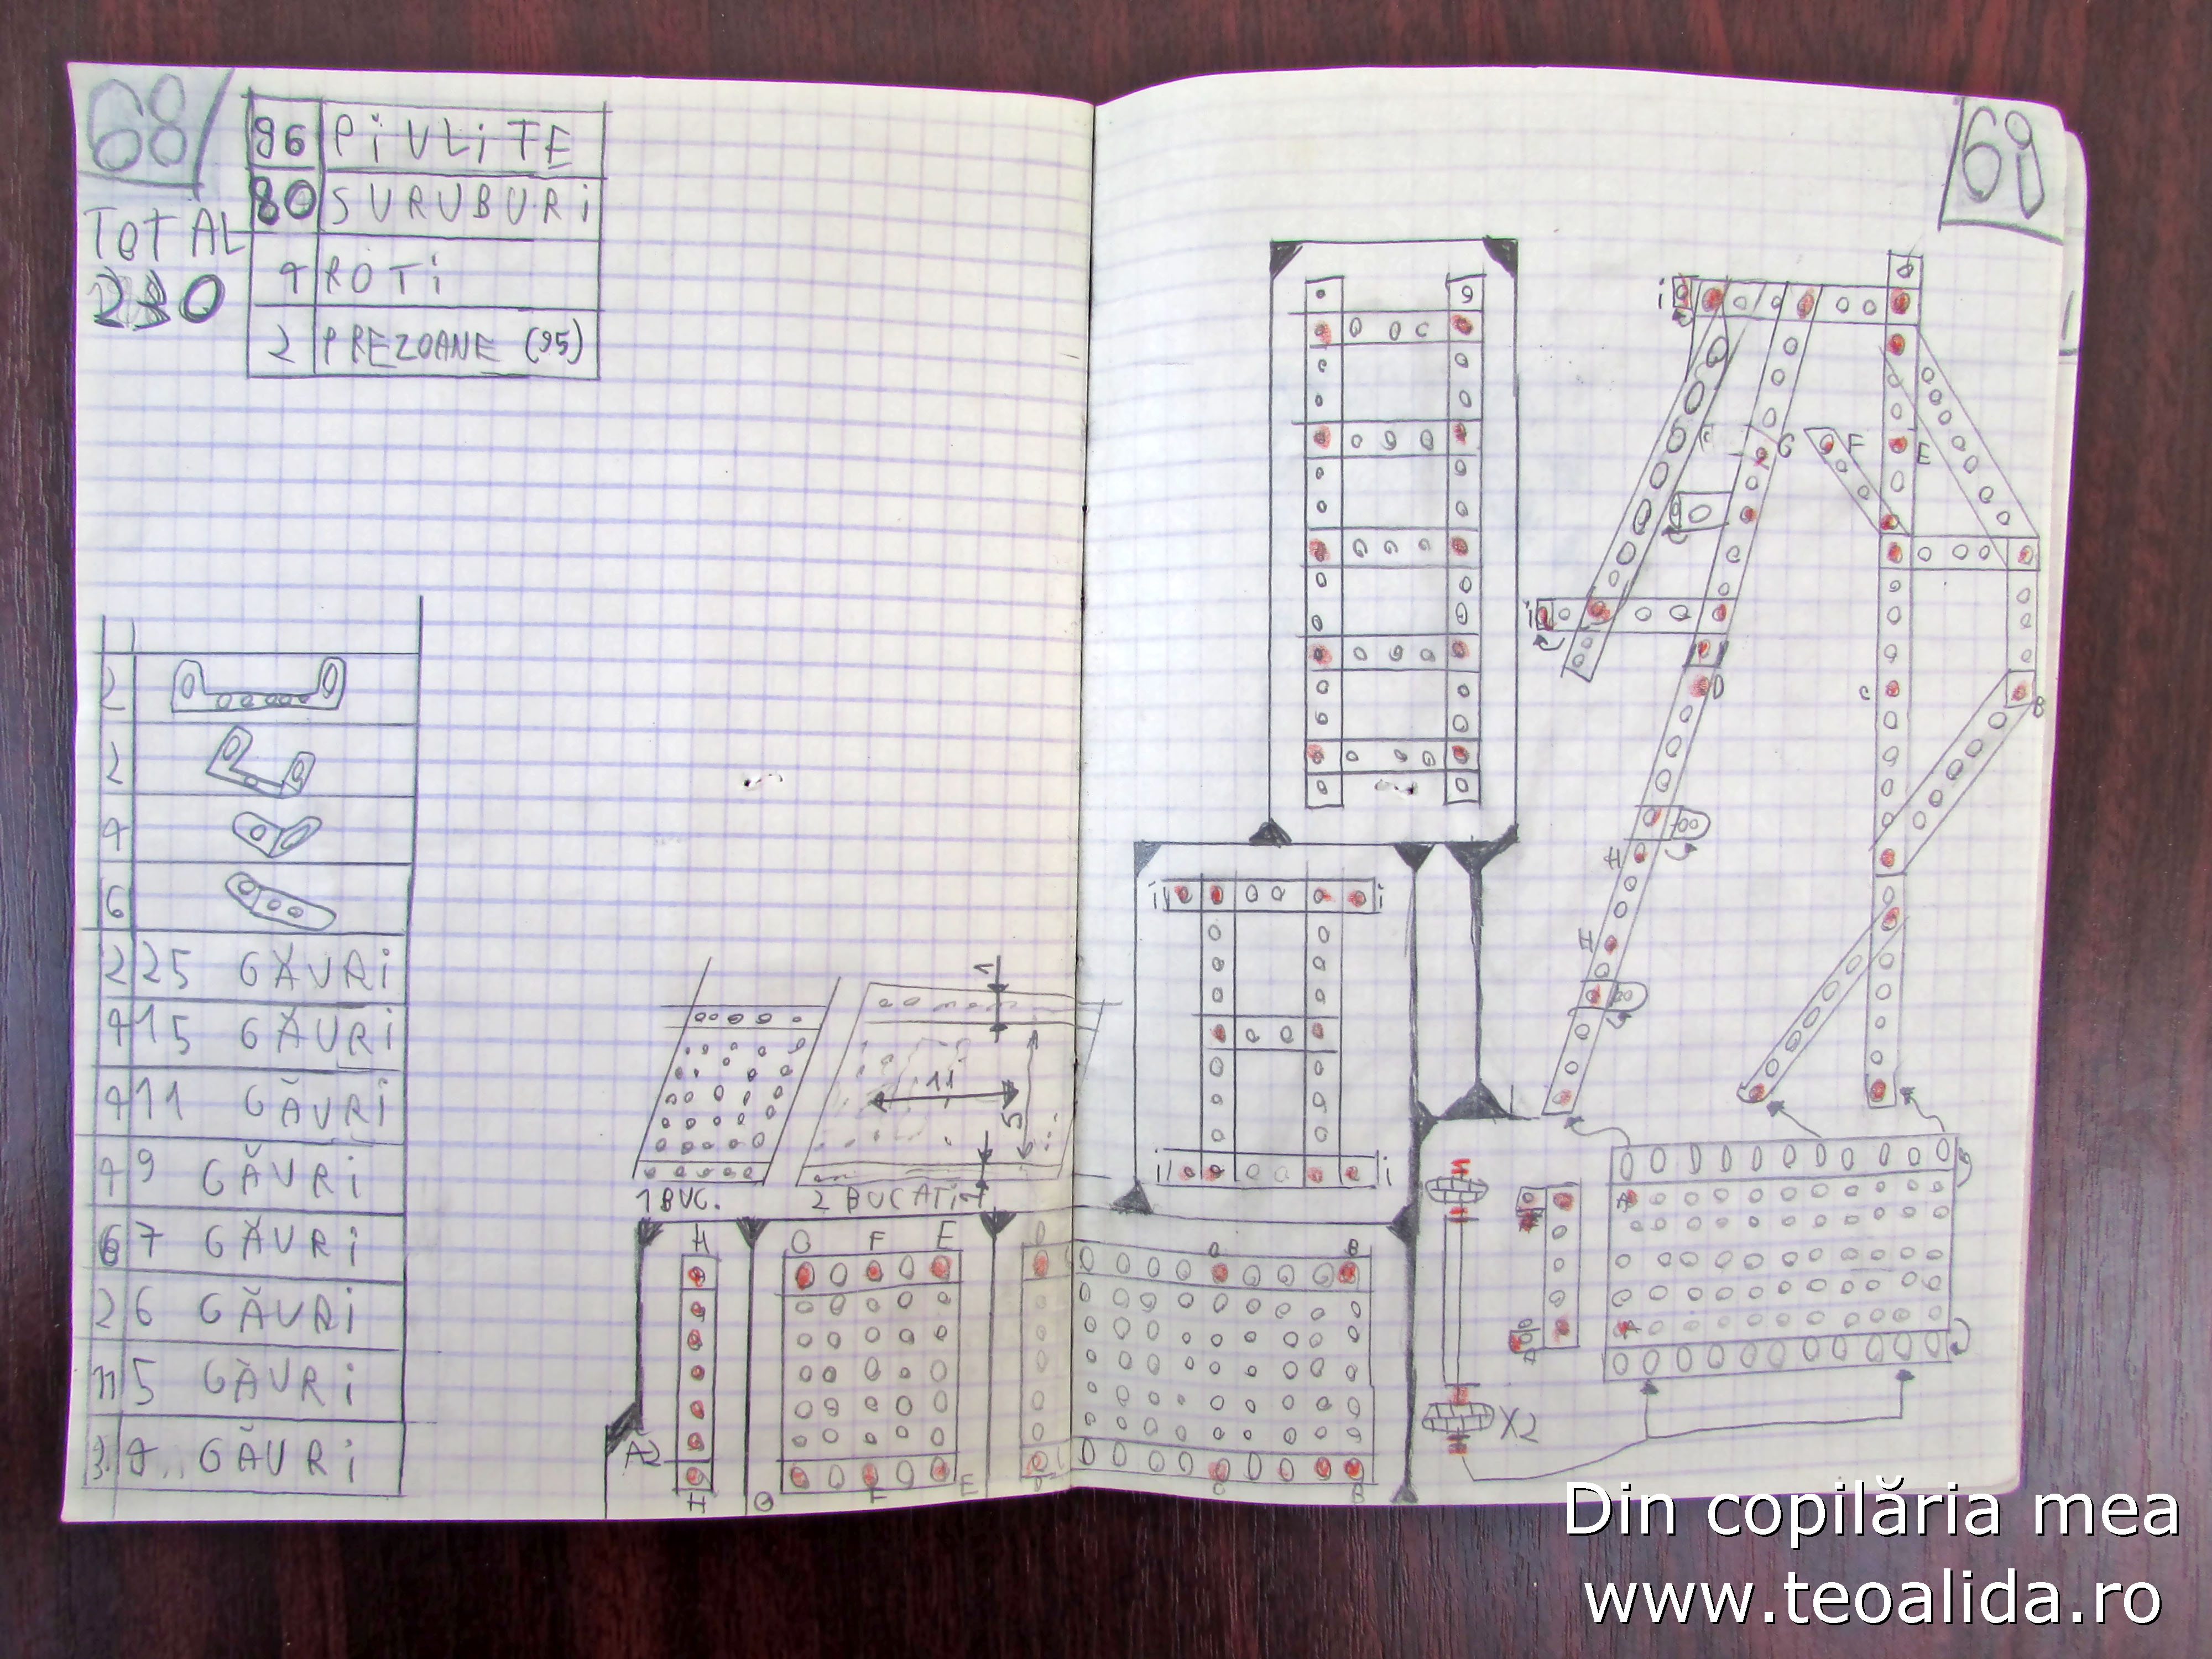 68
TOTAL
230
96 PiVLiTE
80 SURUBURi
4 ROTi
2 PREZOANE (95)
2
2
4
6
2 25 GĂURi
4 15 GĂURi
4 11 GĂURi
4 9 GĂURi
6 7 GĂURi
2 6 GĂURi
11 5 GĂURi
4 GĂURi
1
11
5
1
1 BUC.
2 BUCATi
H
G F E
A2
H
G F E
69
i
G
F
E
i
D
C
B
H
H
i i
i i
B
B
A
A
X2
Din copilăria mea
www.teoalida.ro